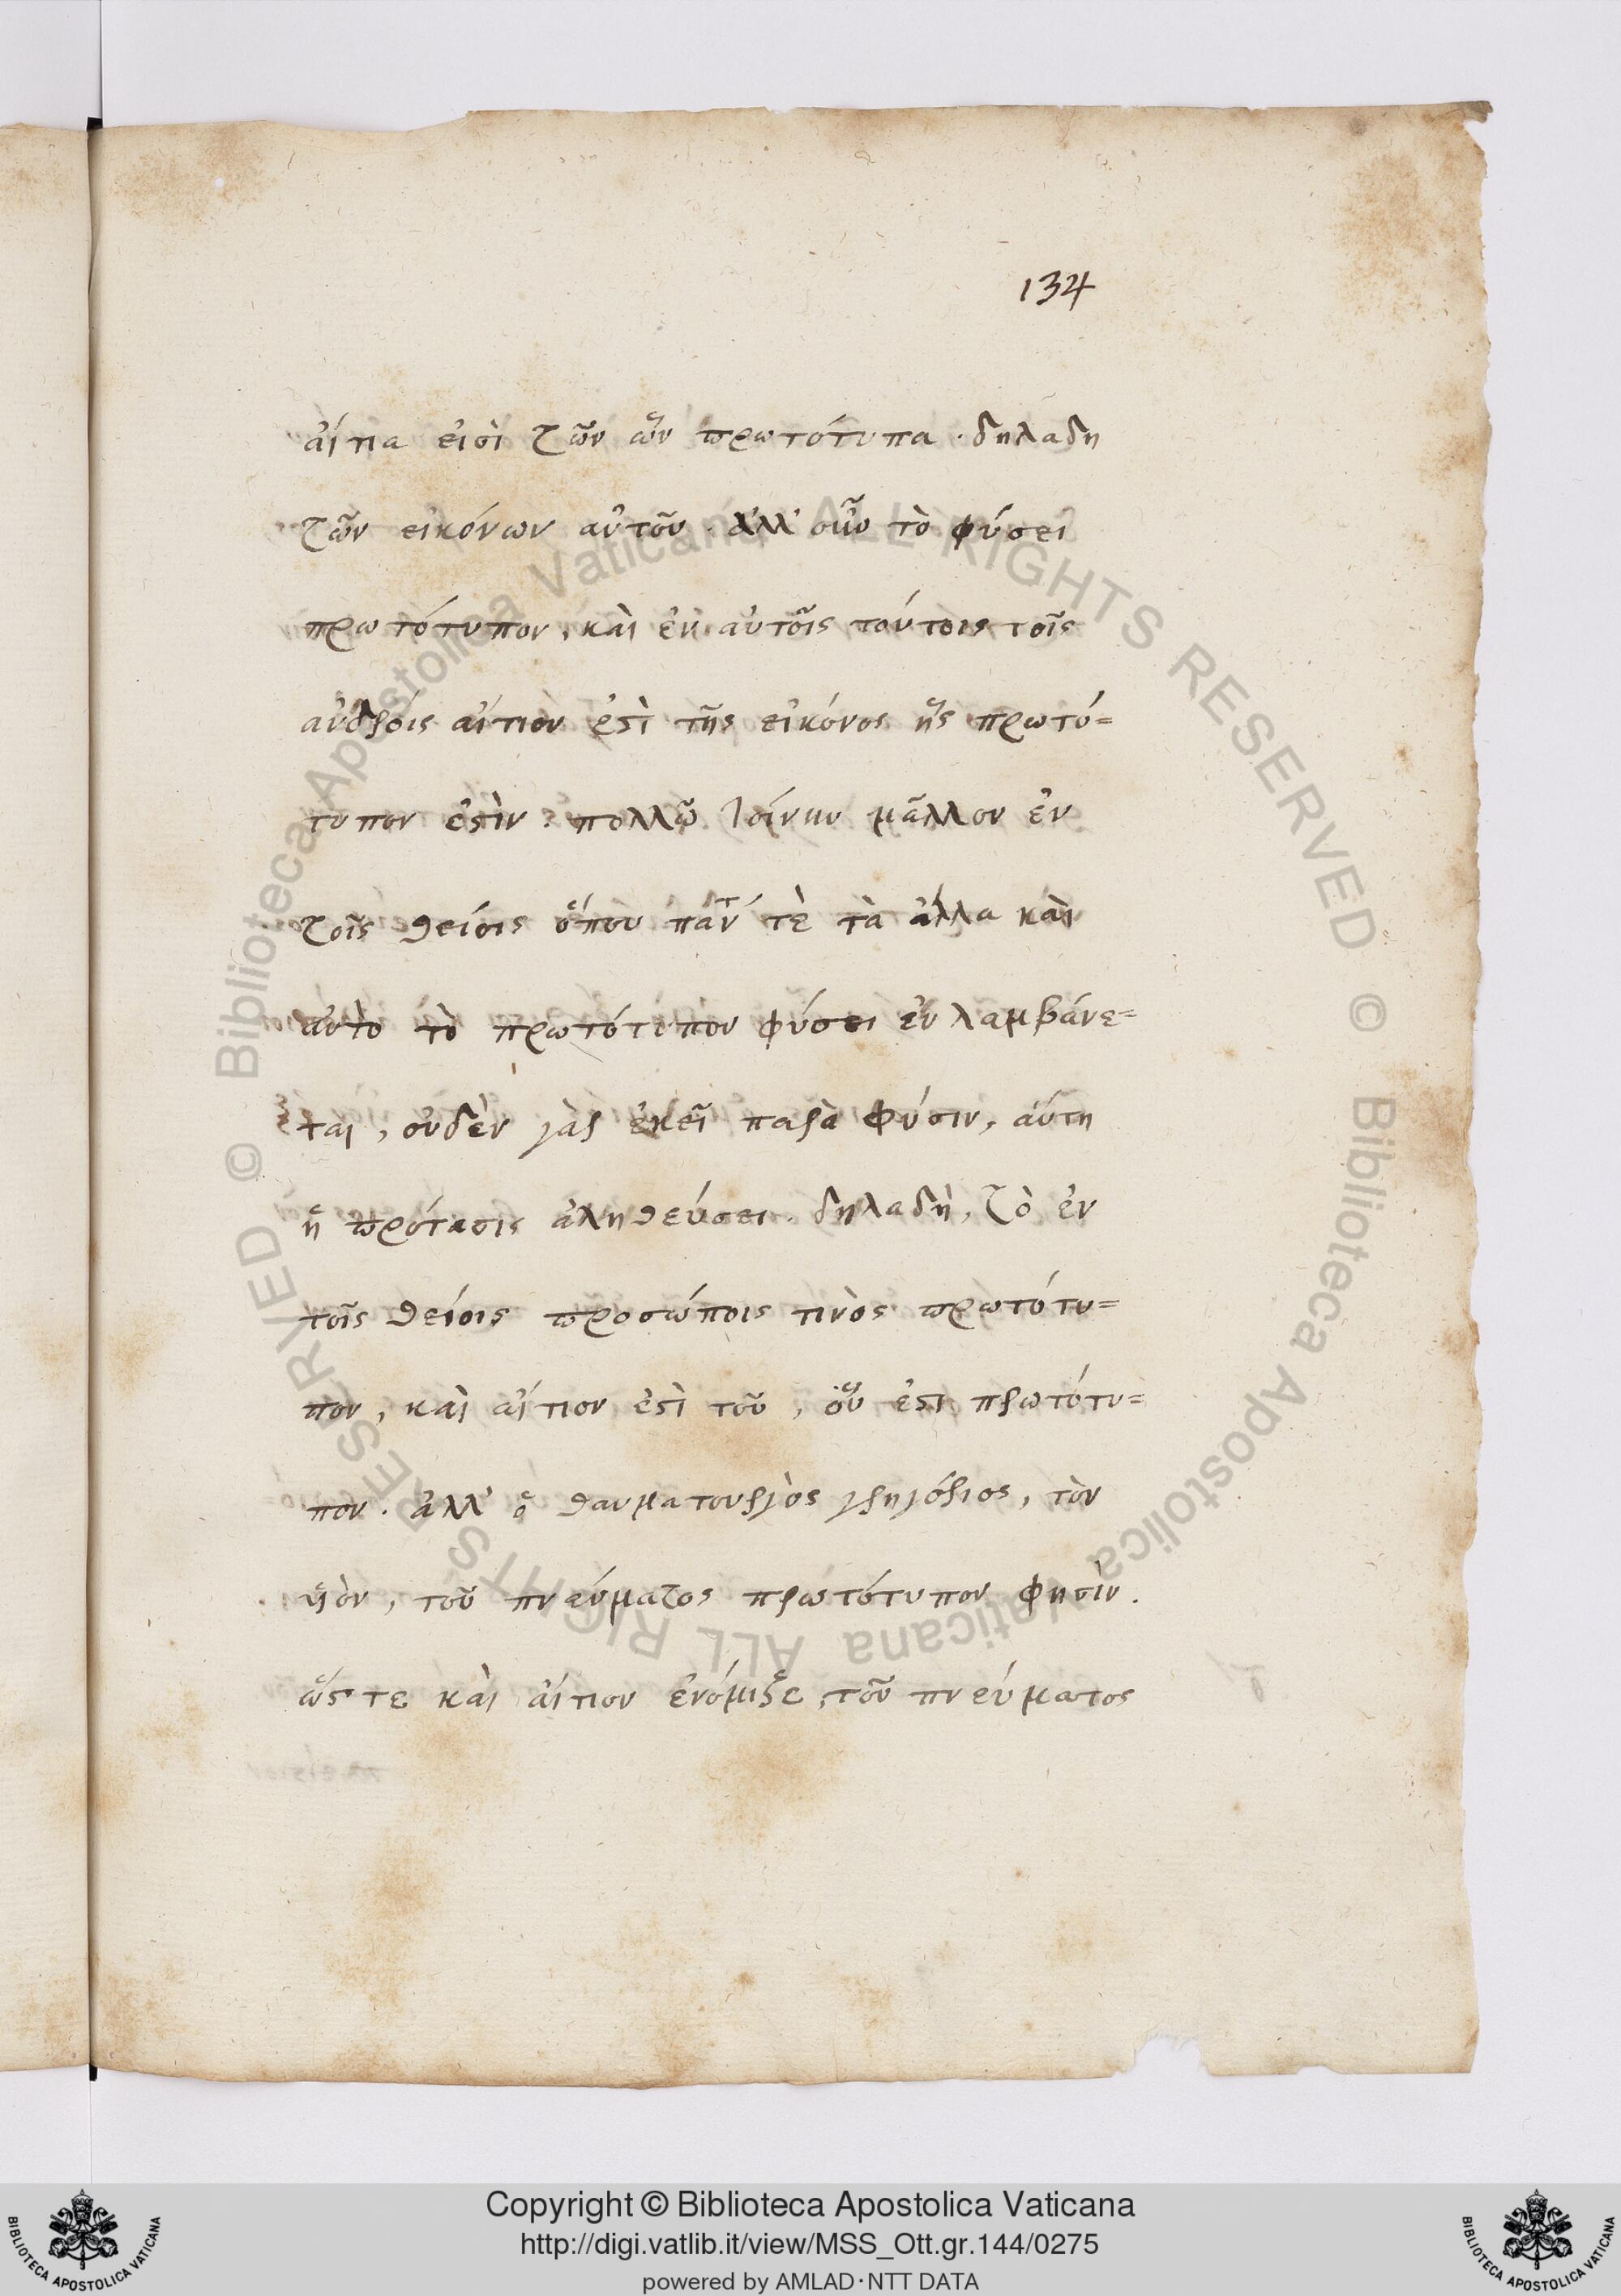 134
αἴτια εἰσὶ τῶν ὧν πρωτότυπα · δηλαδη
τῶν εἰκόνων αὐτοῦ · ἀλλ' οὖν τὸ φύσει
πρωτότυπον, καὶ ἐν αὐτοῖς τούτοις τοῖς
αἴτιον ἐστὶ τῆς εἰκόνος ἧς πρωτό=
τυπον ἐστὶν · πολλῷ τοίνυν μᾶλλον ἐν
τοῖς θείοις ὅπου πάντ τὲ τὰ ἄλλα καὶ
αὐτὸ τὸ πρωτότυπον φύσει ἐν λαμβάνε=
ται, οὐδὲν γὰρ ἐκεῖ παρὰ φύσιν, αὕτη
ἡ πρότασις ἀληθεύσει · δηλαδὴ, τὸ ἐν
τοῖς θείοις προσώποις τινὸς πρωτότυ=
πον, καὶ αἴτιον ἐστὶ τοῦ, οὗ ἐστι πρωτότυ=
πον · ἀλλ' ὁ θαυματουργὸς γρηγόριος, τὸν
υἱὸν, τοῦ πνεύματος πρωτότυπον φησίν.
ὥστε καὶ αἴτιον ἐνόμιζε, τοῦ πνεύματος
Copyright © Biblioteca Apostolica Vaticana
http://digi.vatlib.it/view/MSS_Ott.gr.144/0275
powered by AMLAD·NTT DATA
BIBLIOTECA APOSTOLICA VATICANA
BIBLIOTECA APOSTOLICA VATICANA
© Biblioteca Apostolica Vaticana ALL RIGHTS RESERVED © Biblioteca Apostolica Vaticana ALL RIGHTS RESERVED